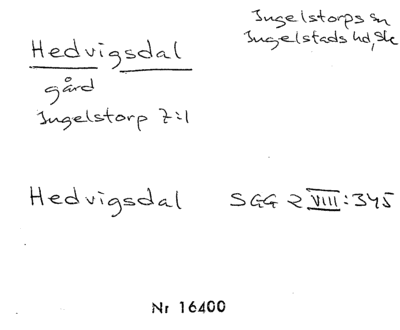 Ingelstorps sn
Ingelstads hd, Sk
Hedvigsdal
gård
Ingelstorp 7:1
Hedvigsdal SGG 2 VIII:345
Nr 16400